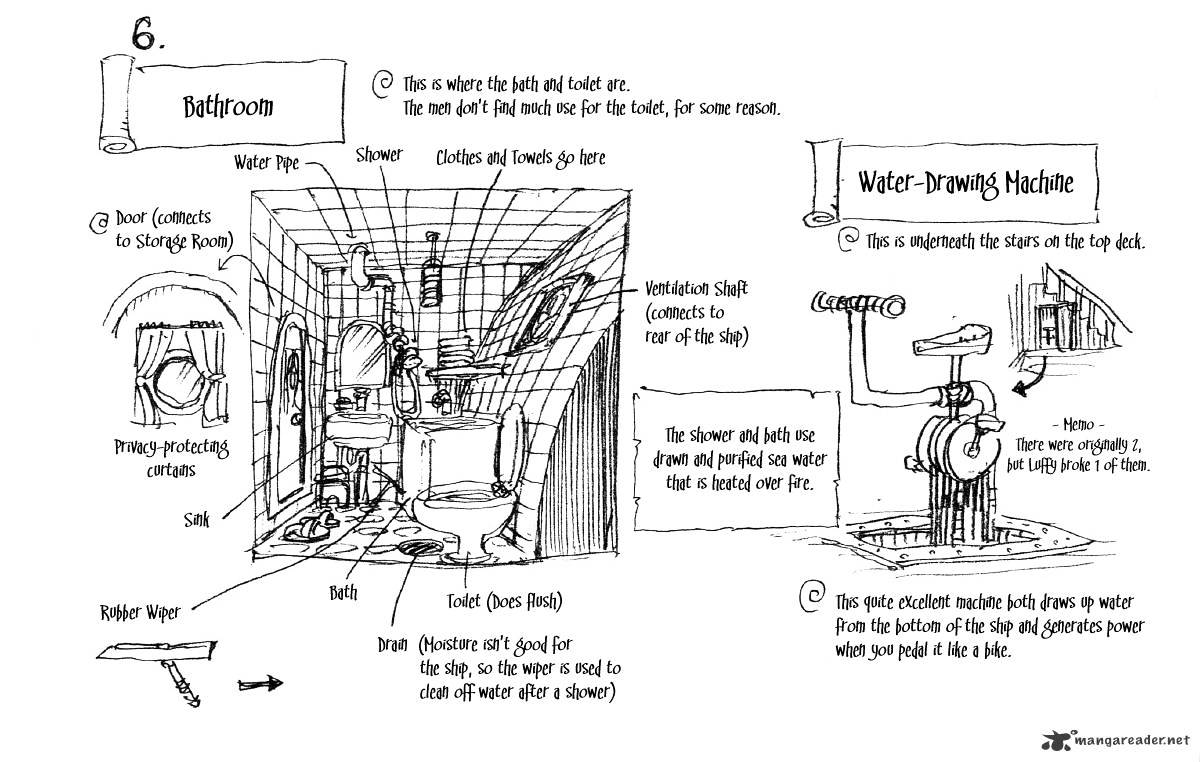 6.
Bathroom
This is where the bath and toilet are.
The men don't find much use for the toilet, for some reason.
Water Pipe
Shower
Clothes and Towels go here
Door (connects
to Storage Room)
Privacy-protecting
curtains
Sink
Rubber Wiper
Bath
Toilet (Does flush)
Drain (Moisture isn't good for
the ship, so the wiper is used to
clean off water after a shower)
Ventilation Shaft
(connects to
rear of the ship)
The shower and bath use
drawn and purified sea water
that is heated over fire.
Water-Drawing Machine
This is underneath the stairs on the top deck.
- Memo -
There were originally 2,
but Luffy broke 1 of them.
This quite excellent machine both draws up water
from the bottom of the ship and generates power
when you pedal it like a bike.
mangareader.net